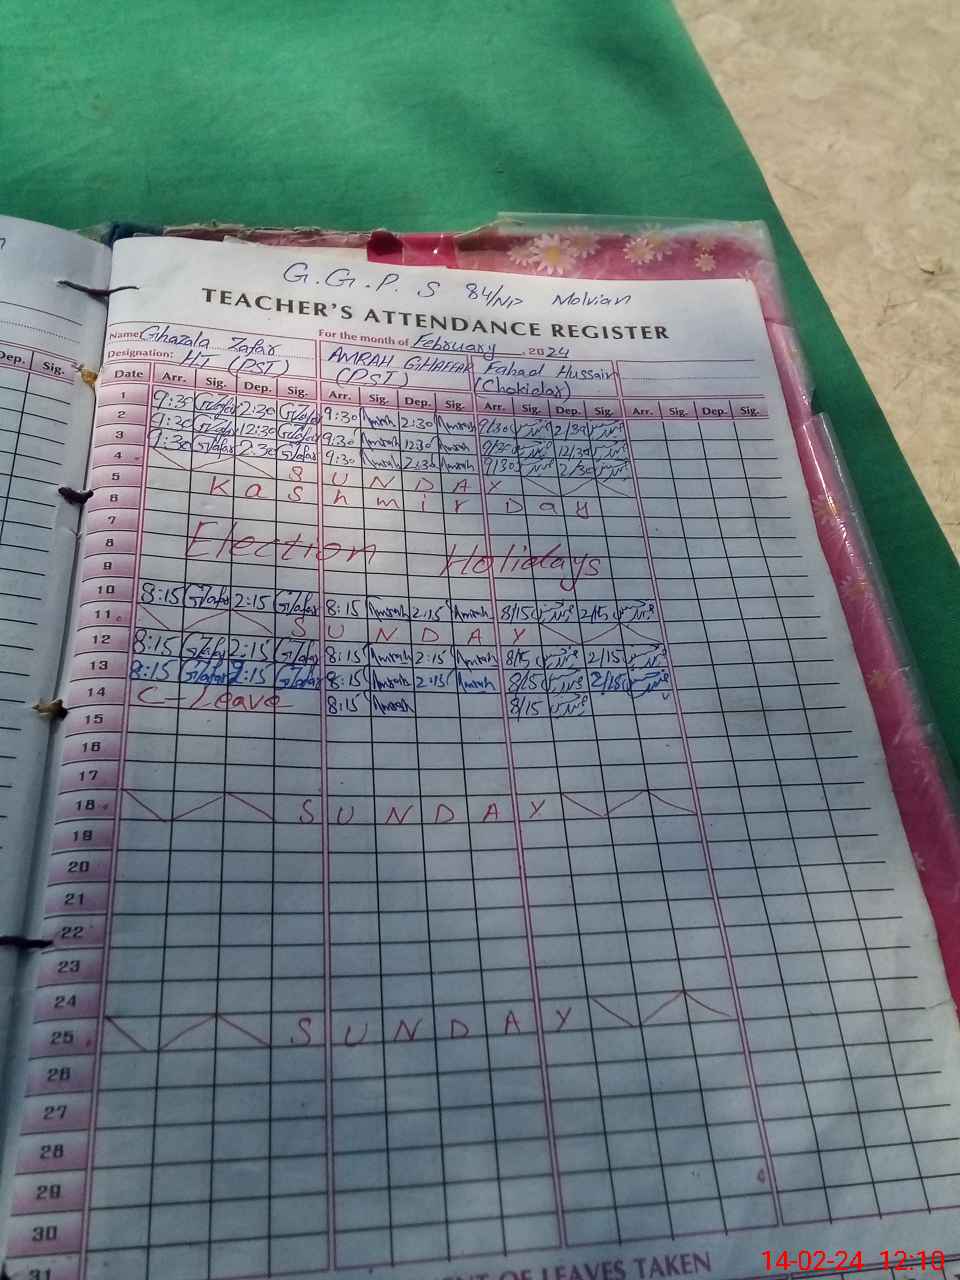 G.G.P.S 84/NP Molvian
TEACHER'S ATTENDANCE REGISTER
Name Ghazala Zafar For the month of February, 2024
Designation: HT (PST) AMRAH GHAFFAR (PST) Fahad Hussain (Chokidar)
Date Arr. Sig. Dep. Sig. Arr. Sig. Dep. Sig. Arr. Sig. Dep. Sig. Arr. Sig. Dep. Sig.
1 9:30 2:30 9:30 Amrah 2:30 Amrah 9/30 2/30
2 9:30 12:30 9:30 Amrah 12:30 Amrah 9/30 12/30
3 9:30 2:30 9:30 Amrah 2:30 Amrah 9/30 2/30
4 SUNDAY
5 Kashmir Day
6
7
8 Election Holidays
9
10 8:15 G/afar 2:15 G/afar 8:15 Amrah 2:15 Amrah 8/15 2/15
11 SUNDAY
12 8:15 G/afar 2:15 G/afar 8:15 Amrah 2:15 Amrah 8/15 2/15
13 8:15 G/afar 2:15 G/afar 8:15 Amrah 2:15 Amrah 8/15 2/15
14 C-Leave 8:15 Amrah 8/15
15
16
17
18 SUNDAY
19
20
21
22
23
24
25 SUNDAY
26
27
28
29
30
31
OF LEAVES TAKEN
Dep. Sig.
14-02-24 12:10